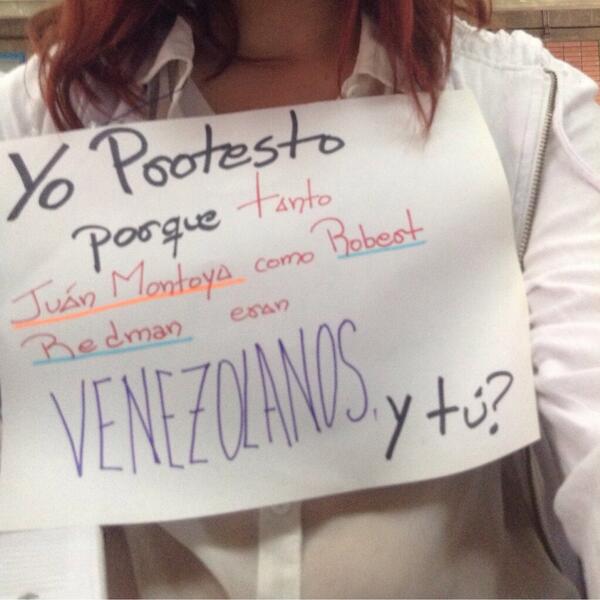 Yo Protesto
porque tanto
Juán Montoya como Robert
Redman eran
VENEZOLANOS. y tú?